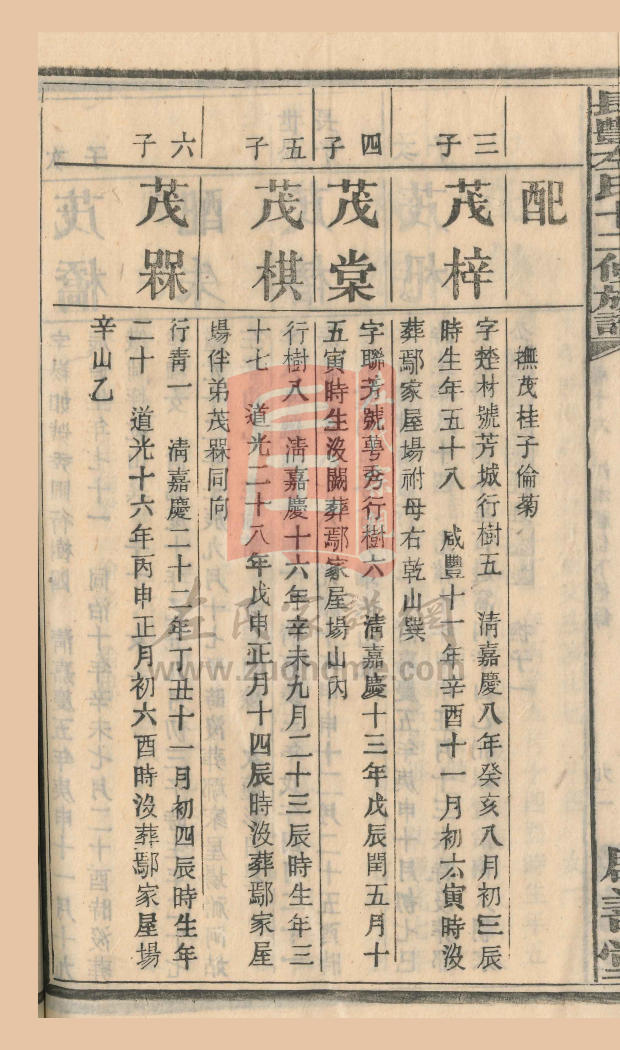 長豐左氏十二修族譜
配
撫茂桂子倫菊
三子
茂梓
字楚材號芳城行樹五 淸嘉慶八年癸亥八月初三辰
時生年五十八 咸豐十一年辛酉十一月初六寅時沒
葬鄢家屋場祔母右乾山巽
四子
茂棠
字聯芳號萼秀行樹六 淸嘉慶十三年戊辰閏五月十
五寅時生沒闕葬鄢家屋場山內
五子
茂棋
行樹八 淸嘉慶十六年辛未九月二十三辰時生年三
十七 道光二十八年戊申正月十四辰時沒葬鄢家屋
場伴弟茂槑同向
六子
茂槑
行青一 淸嘉慶二十二年丁丑十一月初四辰時生年
二十 道光十六年丙申正月初六酉時沒葬鄢家屋場
辛山乙
左氏家譜網
www.zuohome.com